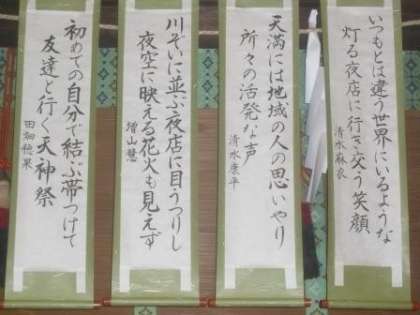 いつもとは違う世界にいるような
灯る夜店に行き交う笑顔
清水麻衣
天満には地域の人の思いやり
所々の活発な声
清水康平
川ぞいに並ぶ夜店に目うつりし
夜空に映える花火も見えず
増山慧
初めての自分で結ぶ帯つけて
友達と行く天神祭
田畑穂果